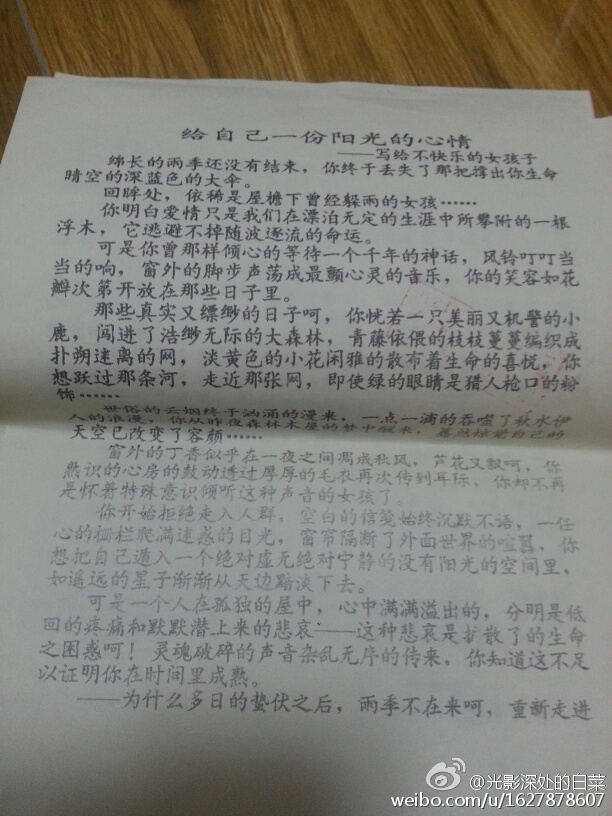 给自己一份阳光的心情
——写给不快乐的女孩子
绵长的雨季还没有结束，你终于丢失了那把撑出你生命
晴空的深蓝色的大伞。
回眸处，依稀是屋檐下曾经躲雨的女孩……
你明白爱情只是我们在漂泊无定的生涯中所攀附的一根
浮木，它逃避不掉随波逐流的命运。
可是你曾那样倾心的等待一个千年的神话，风铃叮叮当
当的响，窗外的脚步声荡成最颤心灵的音乐，你的笑容如花
瓣次第开放在那些日子里。
那些真实又缥缈的日子呵，你恍若一只美丽又机警的小
鹿，闯进了浩缈无际的大森林，青藤依偎的枝枝蔓蔓编织成
扑朔迷离的网，淡黄色的小花闲雅的散布着生命的喜悦，你
想跃过那条河，走近那张网，即使绿的眼睛是猎人枪口的粉
饰……
世俗的云烟终于汹涌的漫来，一点一滴的吞噬了秋水伊
人的浪漫，你从昨夜森林木屋的梦中醒来，蓦然惊觉自己的
天空已改变了容颜……
窗外的丁香似乎在一夜之间凋成秋风，芦花又飘呵，你
熟识的心房的鼓动透过厚厚的毛衣再次传到耳际，你却不再
是怀着特殊意识倾听这种声音的女孩了。
你开始拒绝走入人群，空白的信笺始终沉默不语，一任
心的栅栏爬满迷惑的目光，窗帘隔断了外面世界的喧嚣，你
想把自己遁入一个绝对虚无绝对宁静的没有阳光的空间里，
如遥远的星子渐渐从天边黯淡下去。
可是一个人在孤独的屋中，心中满满溢出的，分明是低
回的疼痛和默默潜上来的悲哀——这种悲哀是扩散了的生命
之困惑呵！灵魂破碎的声音杂乱无序的传来，你知道这不足
以证明你在时间里成熟。
——为什么多日的蛰伏之后，雨季不在来呵，重新走进
@光影深处的白菜
weibo.com/u/1627878607